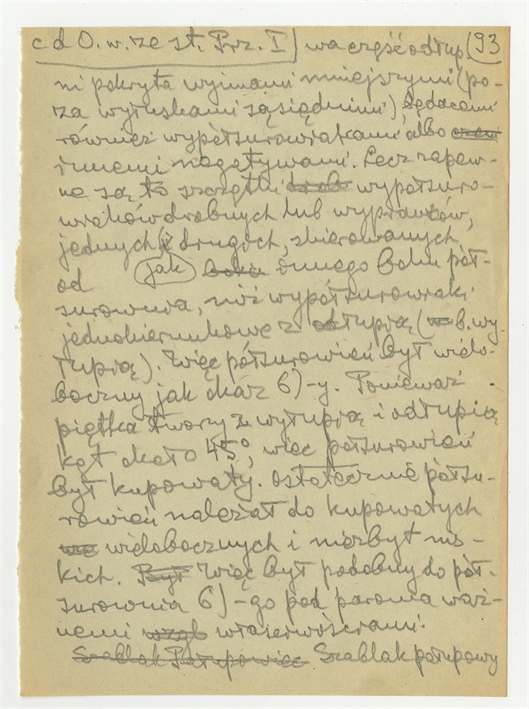 c d O. w. ze st. Prz. I wa część odłup. 93
ni pokryta wyimami mniejszymi (po-
za wyłuskami sąsiednimi), będącemi
również wypółsurowiakami albo
innemi negatywami. Lecz zapew-
ne są to szczątki wypółsuro-
wiaków drobnych lub wypraw
jednych i drugich, zbierowanych
od jak innego boku pół-
surownia, niż wypółsurowiaki
jednokierunkowe z odłupią ( b. wy-
łupią). Więc półsurowień był wielo-
boczny jak okaz 6)-y. Ponieważ
piętka tworzy z wyłupią i odłupią
kąt około 45°, więc półsurowień
był kupowaty. Ostatecznie półsu-
rowień należał do kupowatych
wielobocznych i niezbyt nis-
kich. Więc był podobny do pół-
surownia 6)-go pod paroma waż-
nemi właściwościami.
Szablak Półupowiec Szablak półupowy